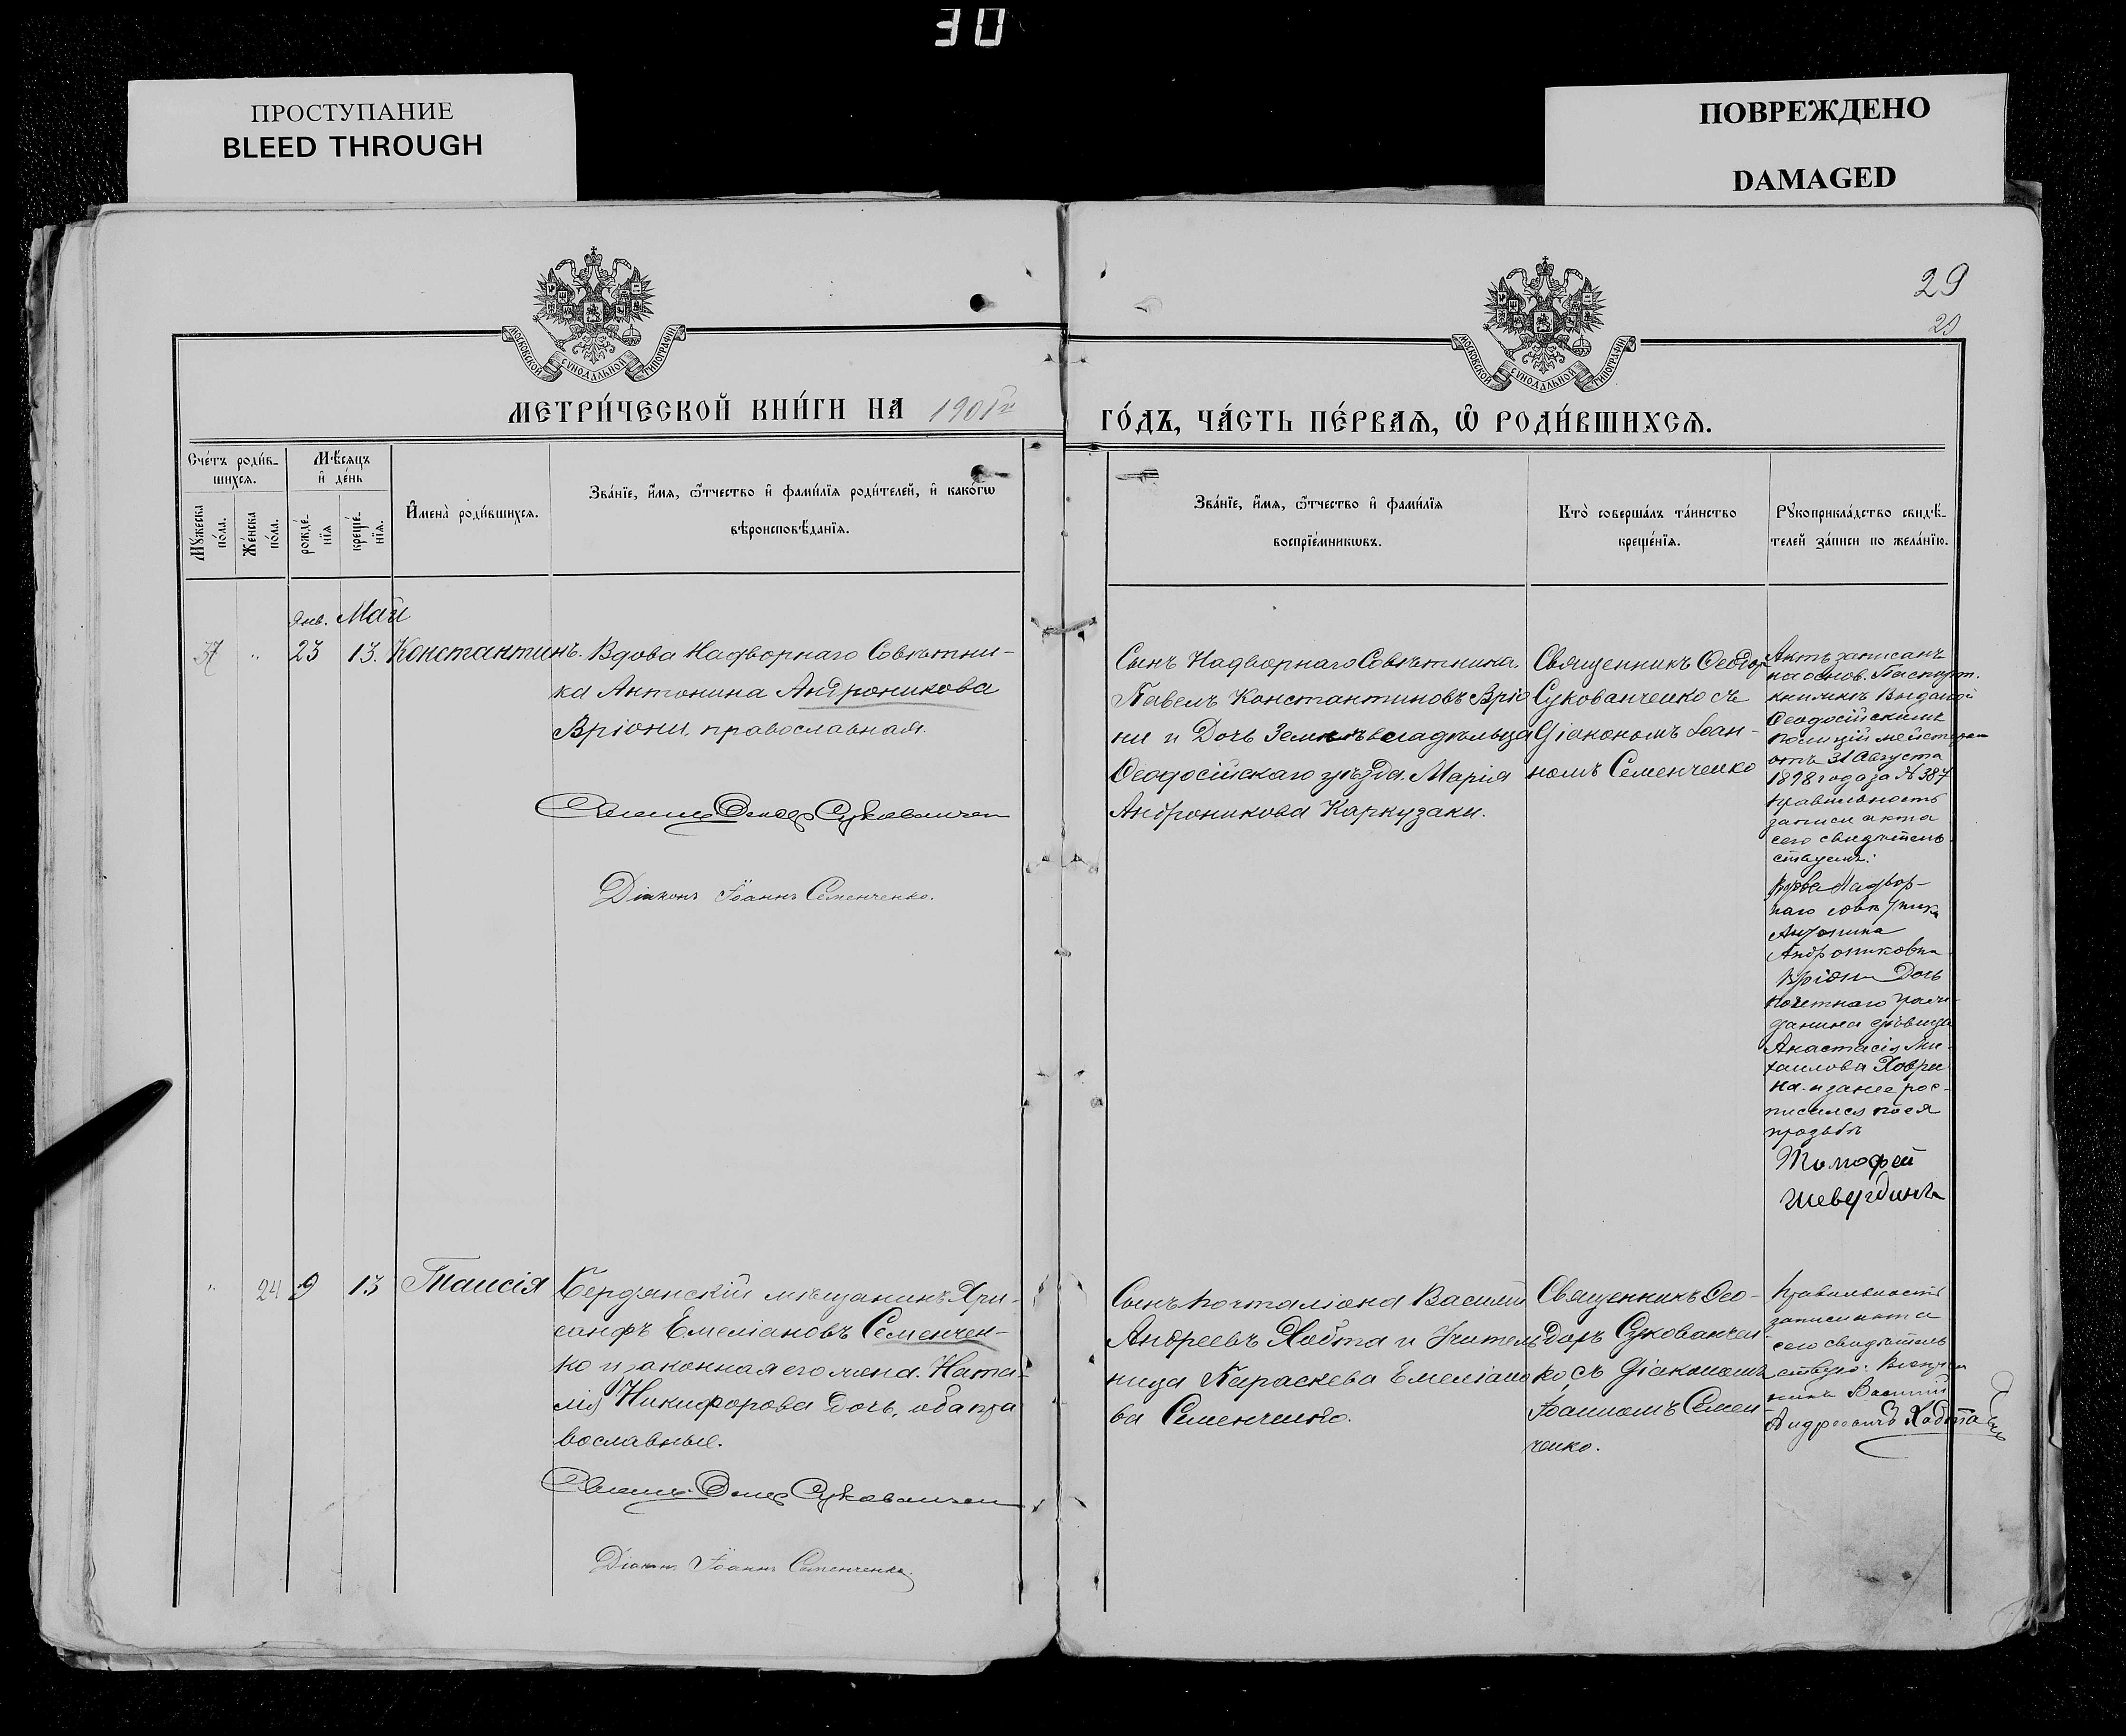 30
ПРОСТУПАНИЕ
BLEED THROUGH
ПОВРЕЖДЕНО
DAMAGED
29
29
МОСКОВСКОЙ СѴНОДАЛЬНОЙ ТИПОГРАФІИ
МОСКОВСКОЙ СѴНОДАЛЬНОЙ ТИПОГРАФІИ
МЕТРИ́ЧЕСКОЙ КНИ́ГИ НА 1901
ГО́ДЪ, ЧА́СТЬ ПЕ́РВАѦ, Ѽ РОДИ́ВШИХСѦ.
Сче́тъ роди́в-
шихсѧ.
Мꙋ́жеска
по́ла.
Же́нска
по́ла.
Мѣ́сѧцъ
и҆ де́нь
рожде́-
нїѧ
креще́-
нїѧ.
И҆мена̀ роди́вшихсѧ.
Зва́нїе, и҆́мѧ, ѻ҆́тчество и҆ фами́лїѧ роди́телей, и҆ како́гѡ
вѣроисповѣ́данїѧ.
Зва́нїе, и҆́мѧ, ѻ҆́тчество и҆ фами́лїѧ
воспрїе́мникѡвъ.
Кто̀ соверша́лъ та́инство
креще́нїѧ.
Рꙋкоприкла́дство свидѣ́-
телей за́писи по жела́нїю.
Янв. Май
37 " 23 13. Константинъ.
Вдова Надворнаго Совѣтни-
ка Антонина Андроникова
Вріони, православная.
Діаконъ Іоаннъ Семенченко.
Сынъ Надворнаго Совѣтника
Павелъ Константиновъ Вріо
ни и Дочь Землевладѣльца
Ѳеодосійскаго уѣзда Марія
Андроникова Каркузаки.
Священникъ Ѳеодор
Сукованченко съ
Діакономъ Іоан-
номъ Семенченко
Актъ записанъ
на основ. Паспорт.
книжки Выданой
Ѳеодосійскимъ
Полиціймейстером
отъ 31 Августа
1898 года за № 387
Правильность
записи акта
сего свидѣтель
ствуемъ:
Вдова Надвор-
наго совѣтника
Антонина
Андрониковна
Вріони Дочь
почетнаго граж-
данина дѣвица
Анастасія Ми-
хаилова Ховри
на. и за нее рос-
писался по ея
прозьбѣ
Тимофей
Шевердинъ
" 24 9 13 Таисія
Бердянскій мѣщанинъ Хри-
санфъ Емеліановъ Семенчен-
ко и законная его жена Ната-
лія Никифорова дочь, оба пра
вославные.
Діаконъ Іоаннъ Семенченко.
Сынъ почталіона Василій
Андреевъ Хобта и Учитель
ница Параскева Емеліано
ва Семенченко.
Священникъ Ѳео-
доръ Сукованчен-
ко съ Діакономъ
Іоанномъ Семен
ченко.
Правильность
записи акта
сего свидѣтель
ствую:
Василій
Андреевичъ Хобта